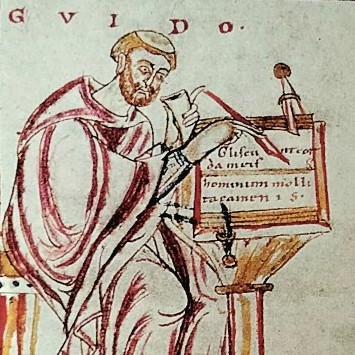 GVIDO.
Gliscunt cor
da meis
hominum molli
ta camenis.